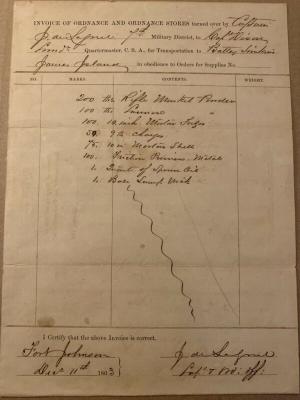 INVOICE OF ORDNANCE AND ORDNANCE STORES turned over by Captain
J. de Lagnel 7th Military District, to Capt
Comdg Quartermaster, C. S. A., for Transportation to Battery Simkins
James Island in obedience to Orders for Supplies No.
NO. MARKS. CONTENTS. WEIGHT.
200 lbs Rifle Musket Powder
100 lbs Cannon "
100. 10 inch Mortar
50 9 lb Charges
75. 10 in Mortar Shell
100. Friction Primers Metal
1. of Sperm Oil
1. Ball Lamp Wick
I Certify that the above Invoice is correct.
Fort Johnson
Dec 11th 1863
J. de Lagnel
Capt & Ord. Off.